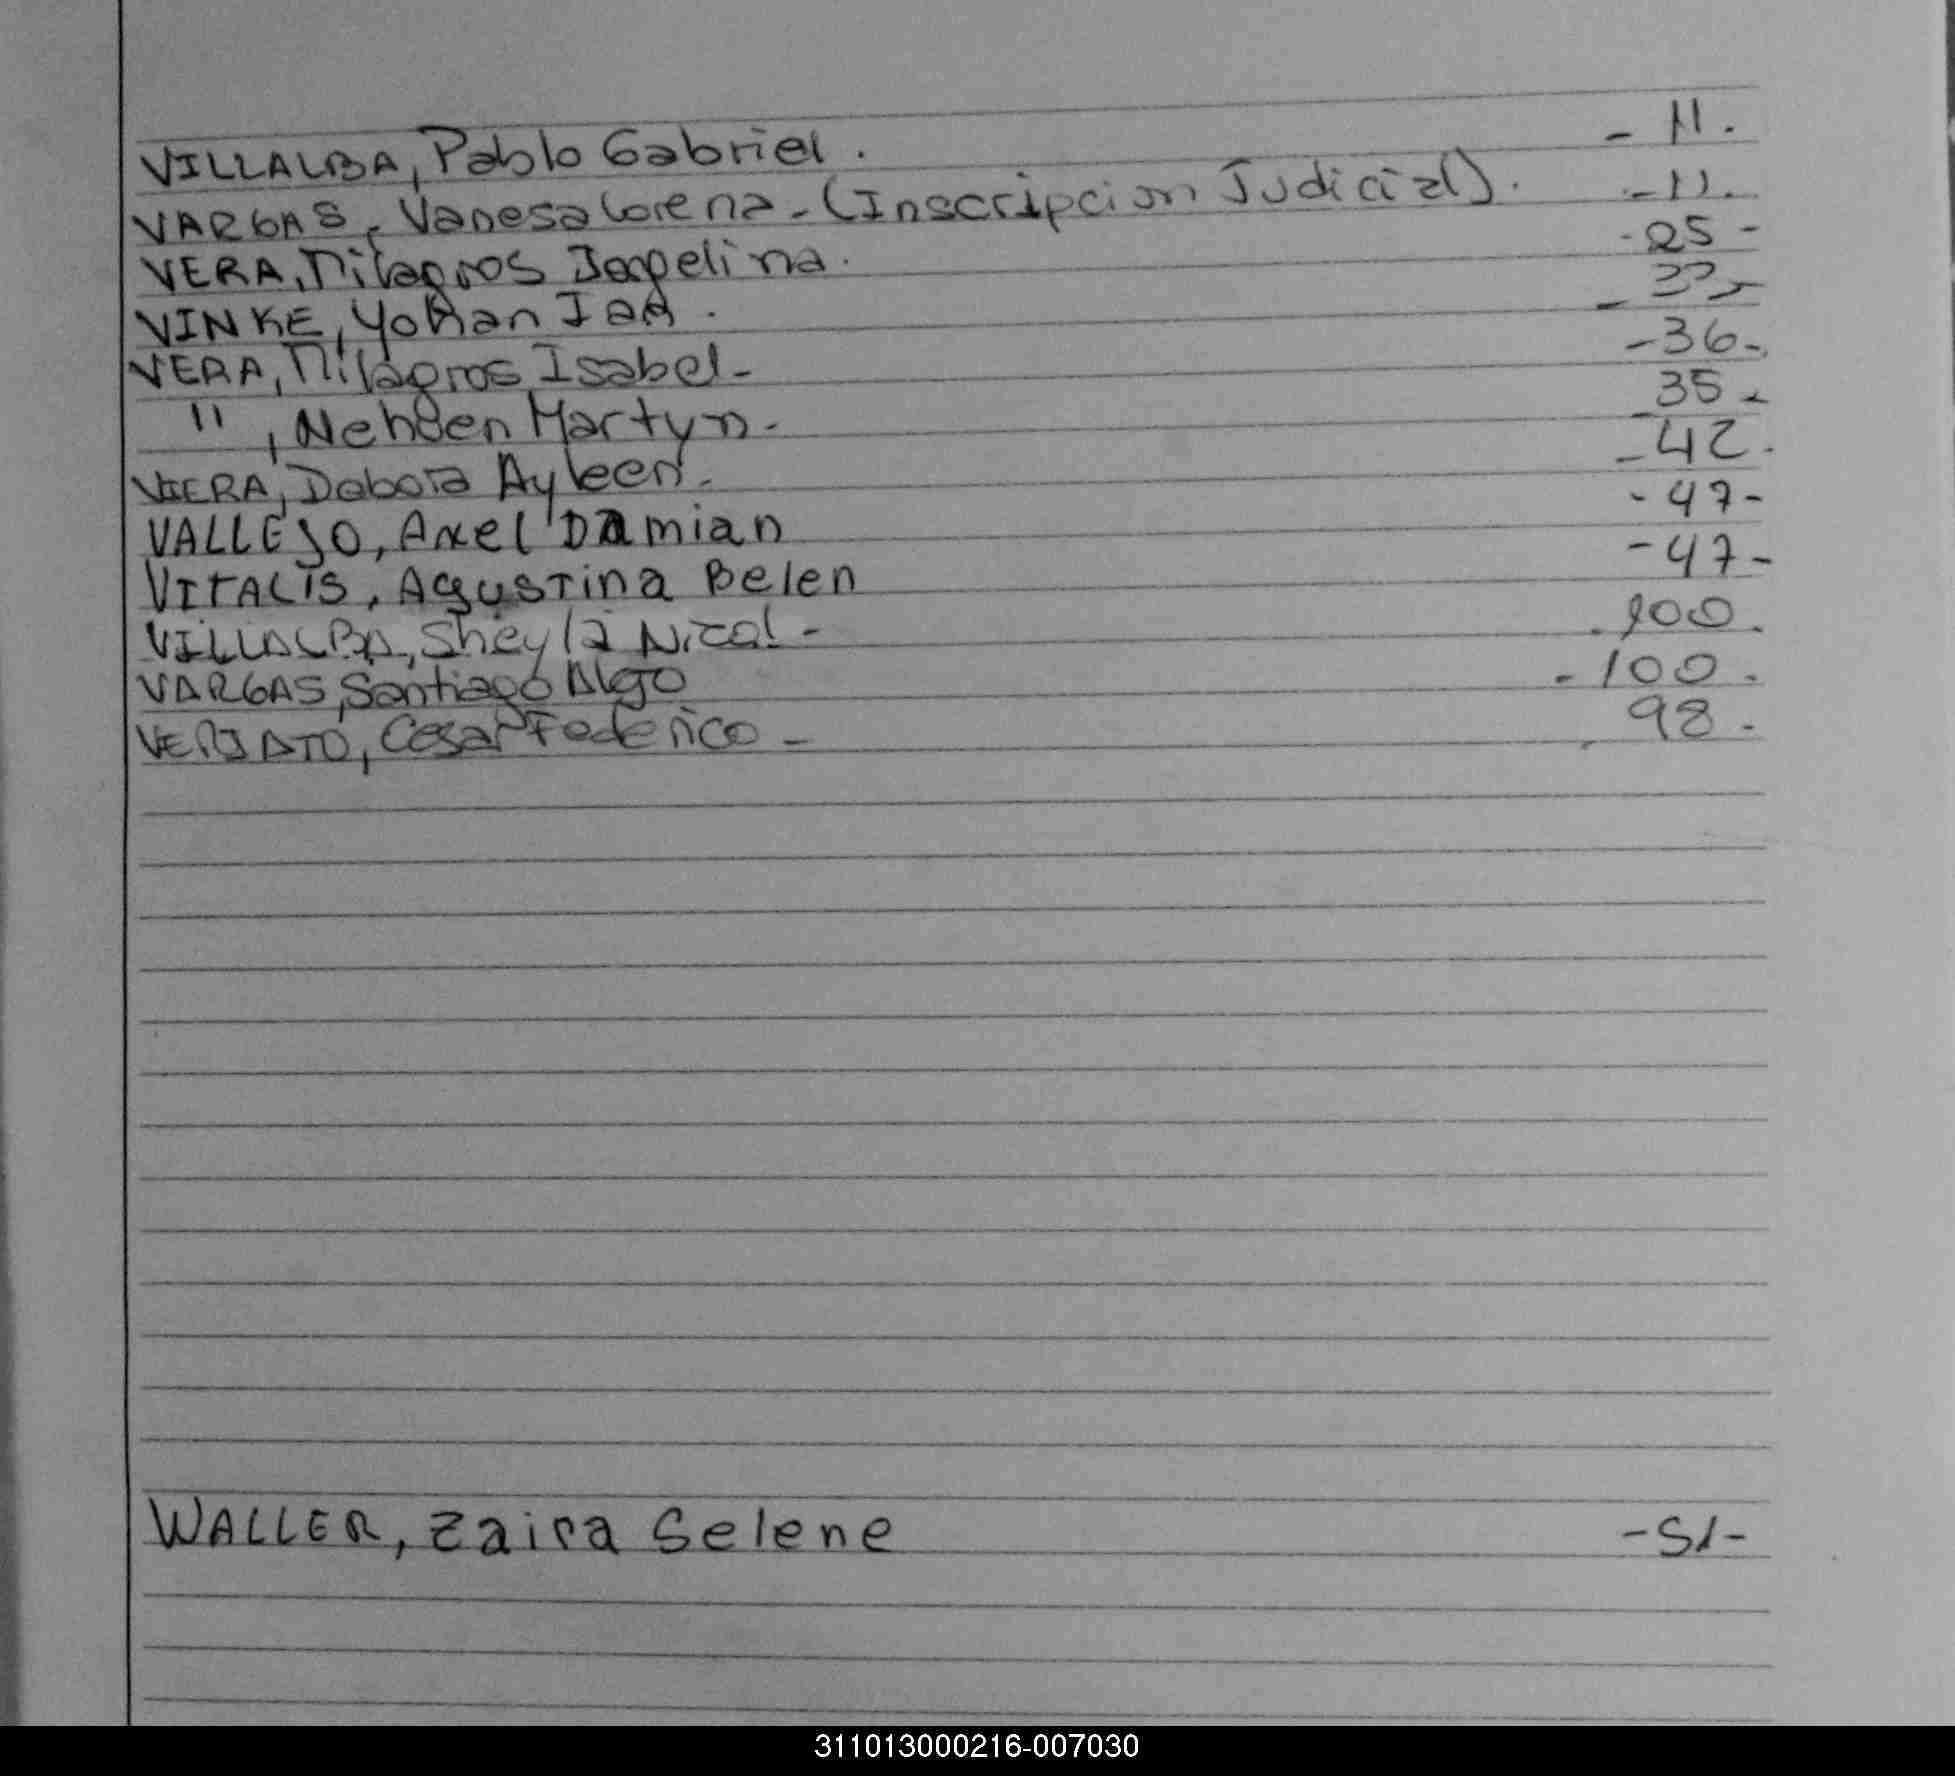 VILLALBA, Pablo Gabriel. - 11.
VARGAS, Vanesa Lorena - (Inscripcion Judicial). - 11.
VERA, Milagros - 25 -
VINKE, Yohan Ian. - 33 -
VERA, Milagros Isabel - - 36 -
" , Nehuen Martyn. - 35 -
VIERA, Debora Ayleen. - 42.
VALLEJO, Axel Damian - 47 -
VITALIS, Agustina Belen - 47 -
VILLALBA, Sheyla Nicol - . 100.
VARGAS, Santiago - 100.
Cesar Federico - 98.
WALLER, Zaira Selene - 51 -
311013000216-007030